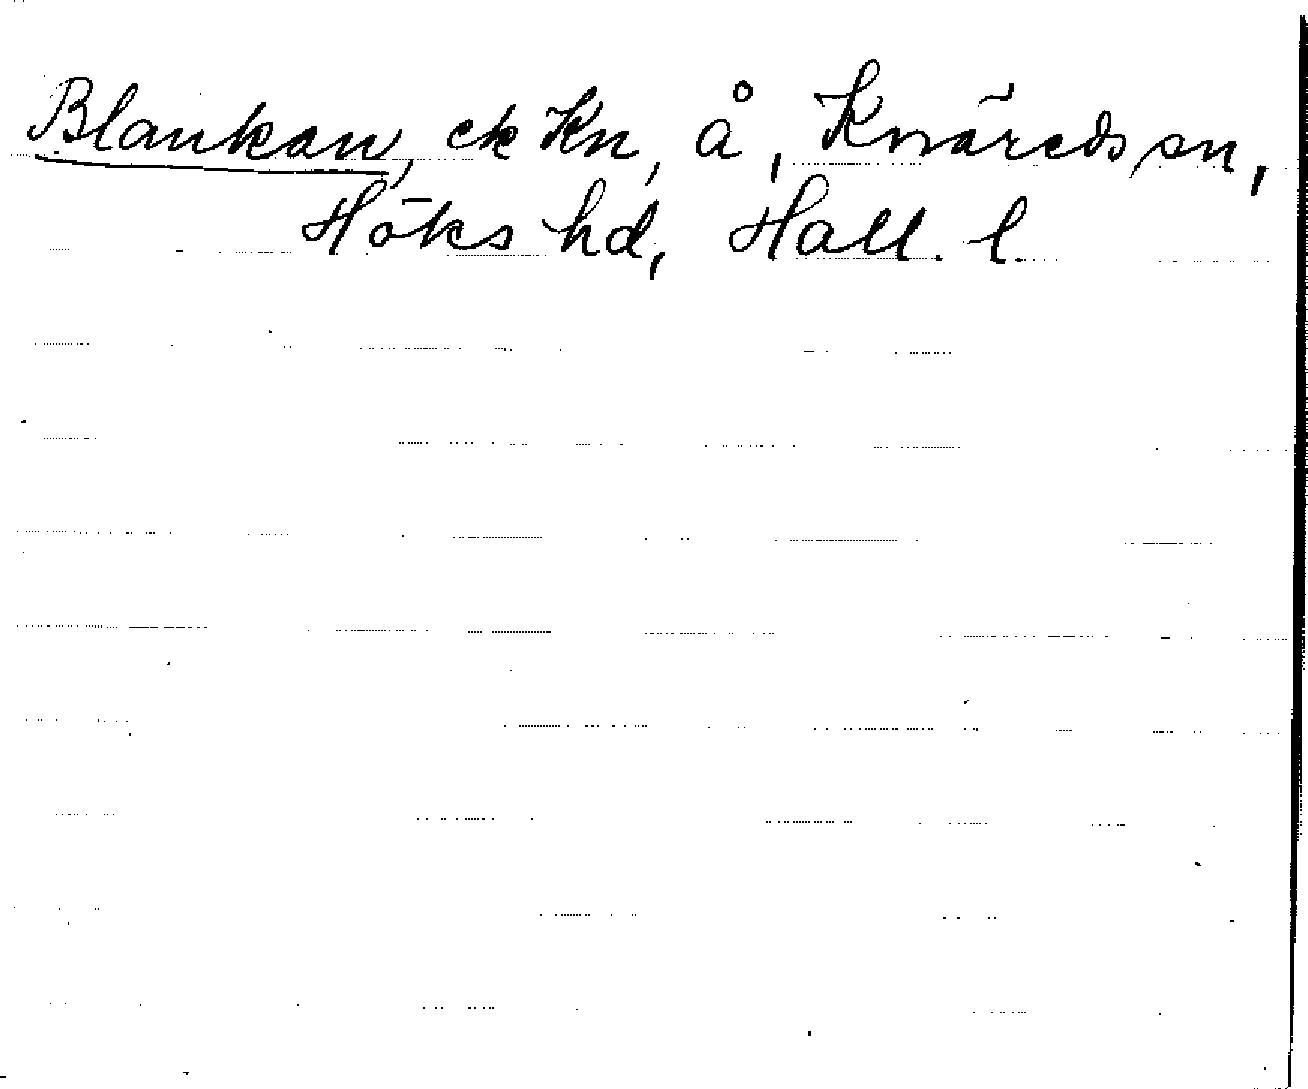 Blankan, ek Kn, å, Knäreds sn,
Höks hd, Hall. l